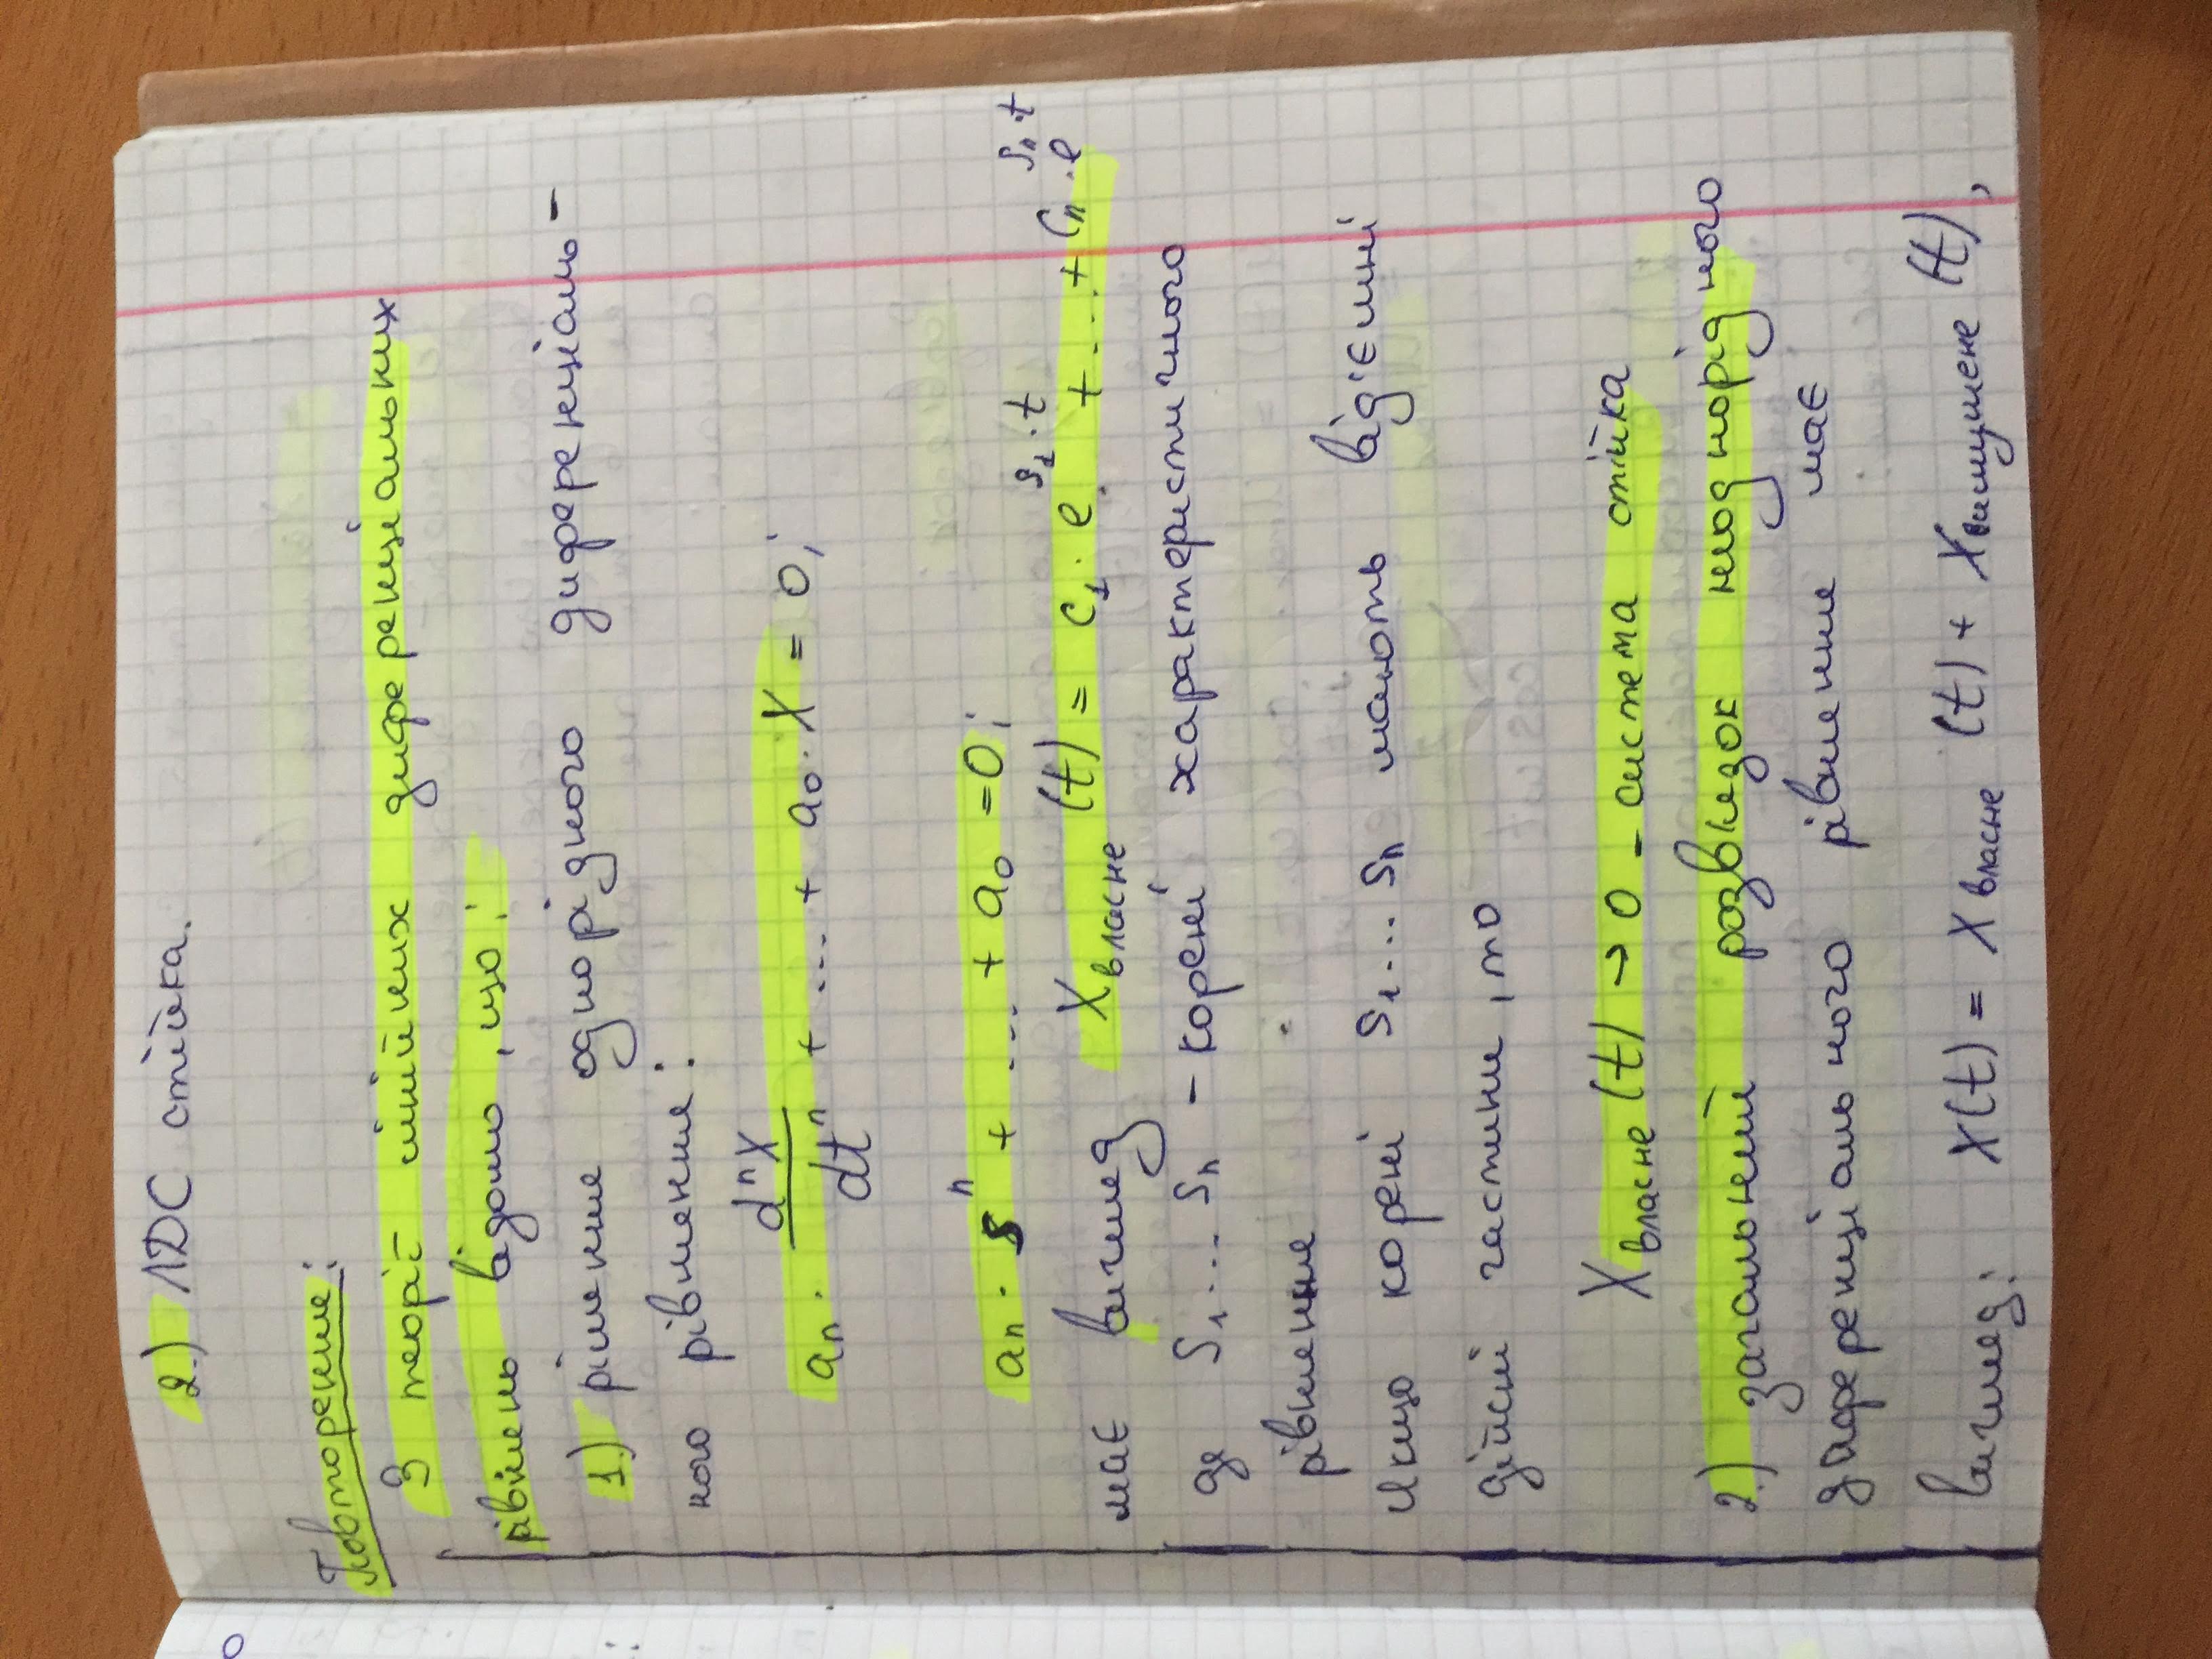 2.) ЛДС стійка.
Повторення:
З теорії лінійних диференціальних
рівнянь відомо, що:
1.) рішення однорідного диференціаль-
ного рівняння:
aₙ · dⁿX/dtⁿ + ... + a₀ · X = 0;
aₙ · sⁿ + ... + a₀ = 0;
має вигляд X власне (t) = c₁ · e^(s₁·t) + ... + cₙ · e^(sₙ·t)
де s₁ ... sₙ – корені характеристичного
рівняння
Якщо корені s₁ ... sₙ мають від'ємні
дійсні частини, то
X власне (t) → 0 – система стійка
2.) загальний розв'язок неоднорідного
диференціального рівняння має
вигляд: X(t) = X власне (t) + X вимушене (t),